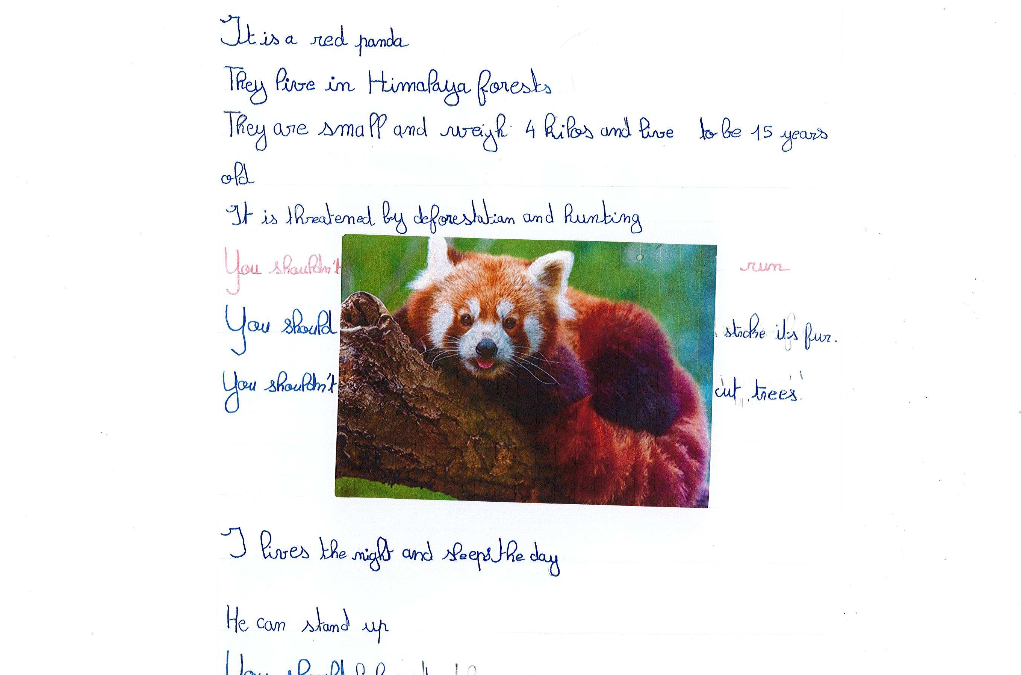 It is a red panda
They live in Himalaya forests
They are small and weigh 4 kilos and live to be 15 years
old
It is threatened by deforestation and hunting
You shouldn't run
You should stroke its fur.
You shouldn't cut trees
I lives the night and sleeps the day
He can stand up
You should